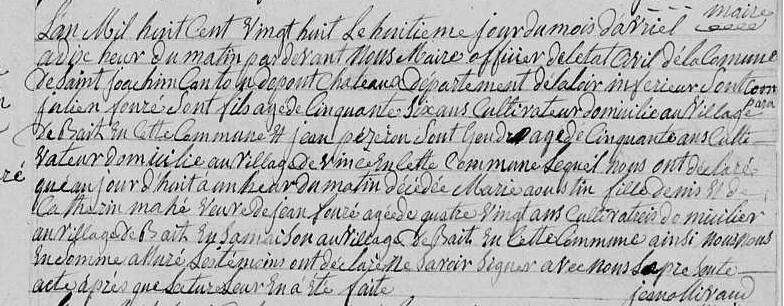 maire
L'an Mil huit Cent Vingt huit Le huitieme jour du mois d'avriel
a dix heur du matin par devant Nous Maire officier de letat Civil de la Comune
de Saint Joachim Canton de pont Chateau département de la loir inferieur Sont Com
para
julien fouré Sont fils age de Cinquante Six ans Cultivateur domicilie au Village
de Bait En Cette Commune Et jean pezron Sont Gendre age de Cinquante ans Culti
Vateur domicilie au Village De Vince En Cette Commune Lequel nous ont déclaré
que au jour d'huit a un heur du matin décédée Marie aoustin fille denis Et de
Catherin mahé Veuve de jean fouré agee de quatre Vingt ans Cultivatris domicilier
au Village de Bait En Sa maison au Village De Bait En Cette Commune ainsi nous
En Comme assuré Les témoins ont déclaré ne Savoir Signer avec nous La presente
acte après que Lecture Leur En a Eté faite